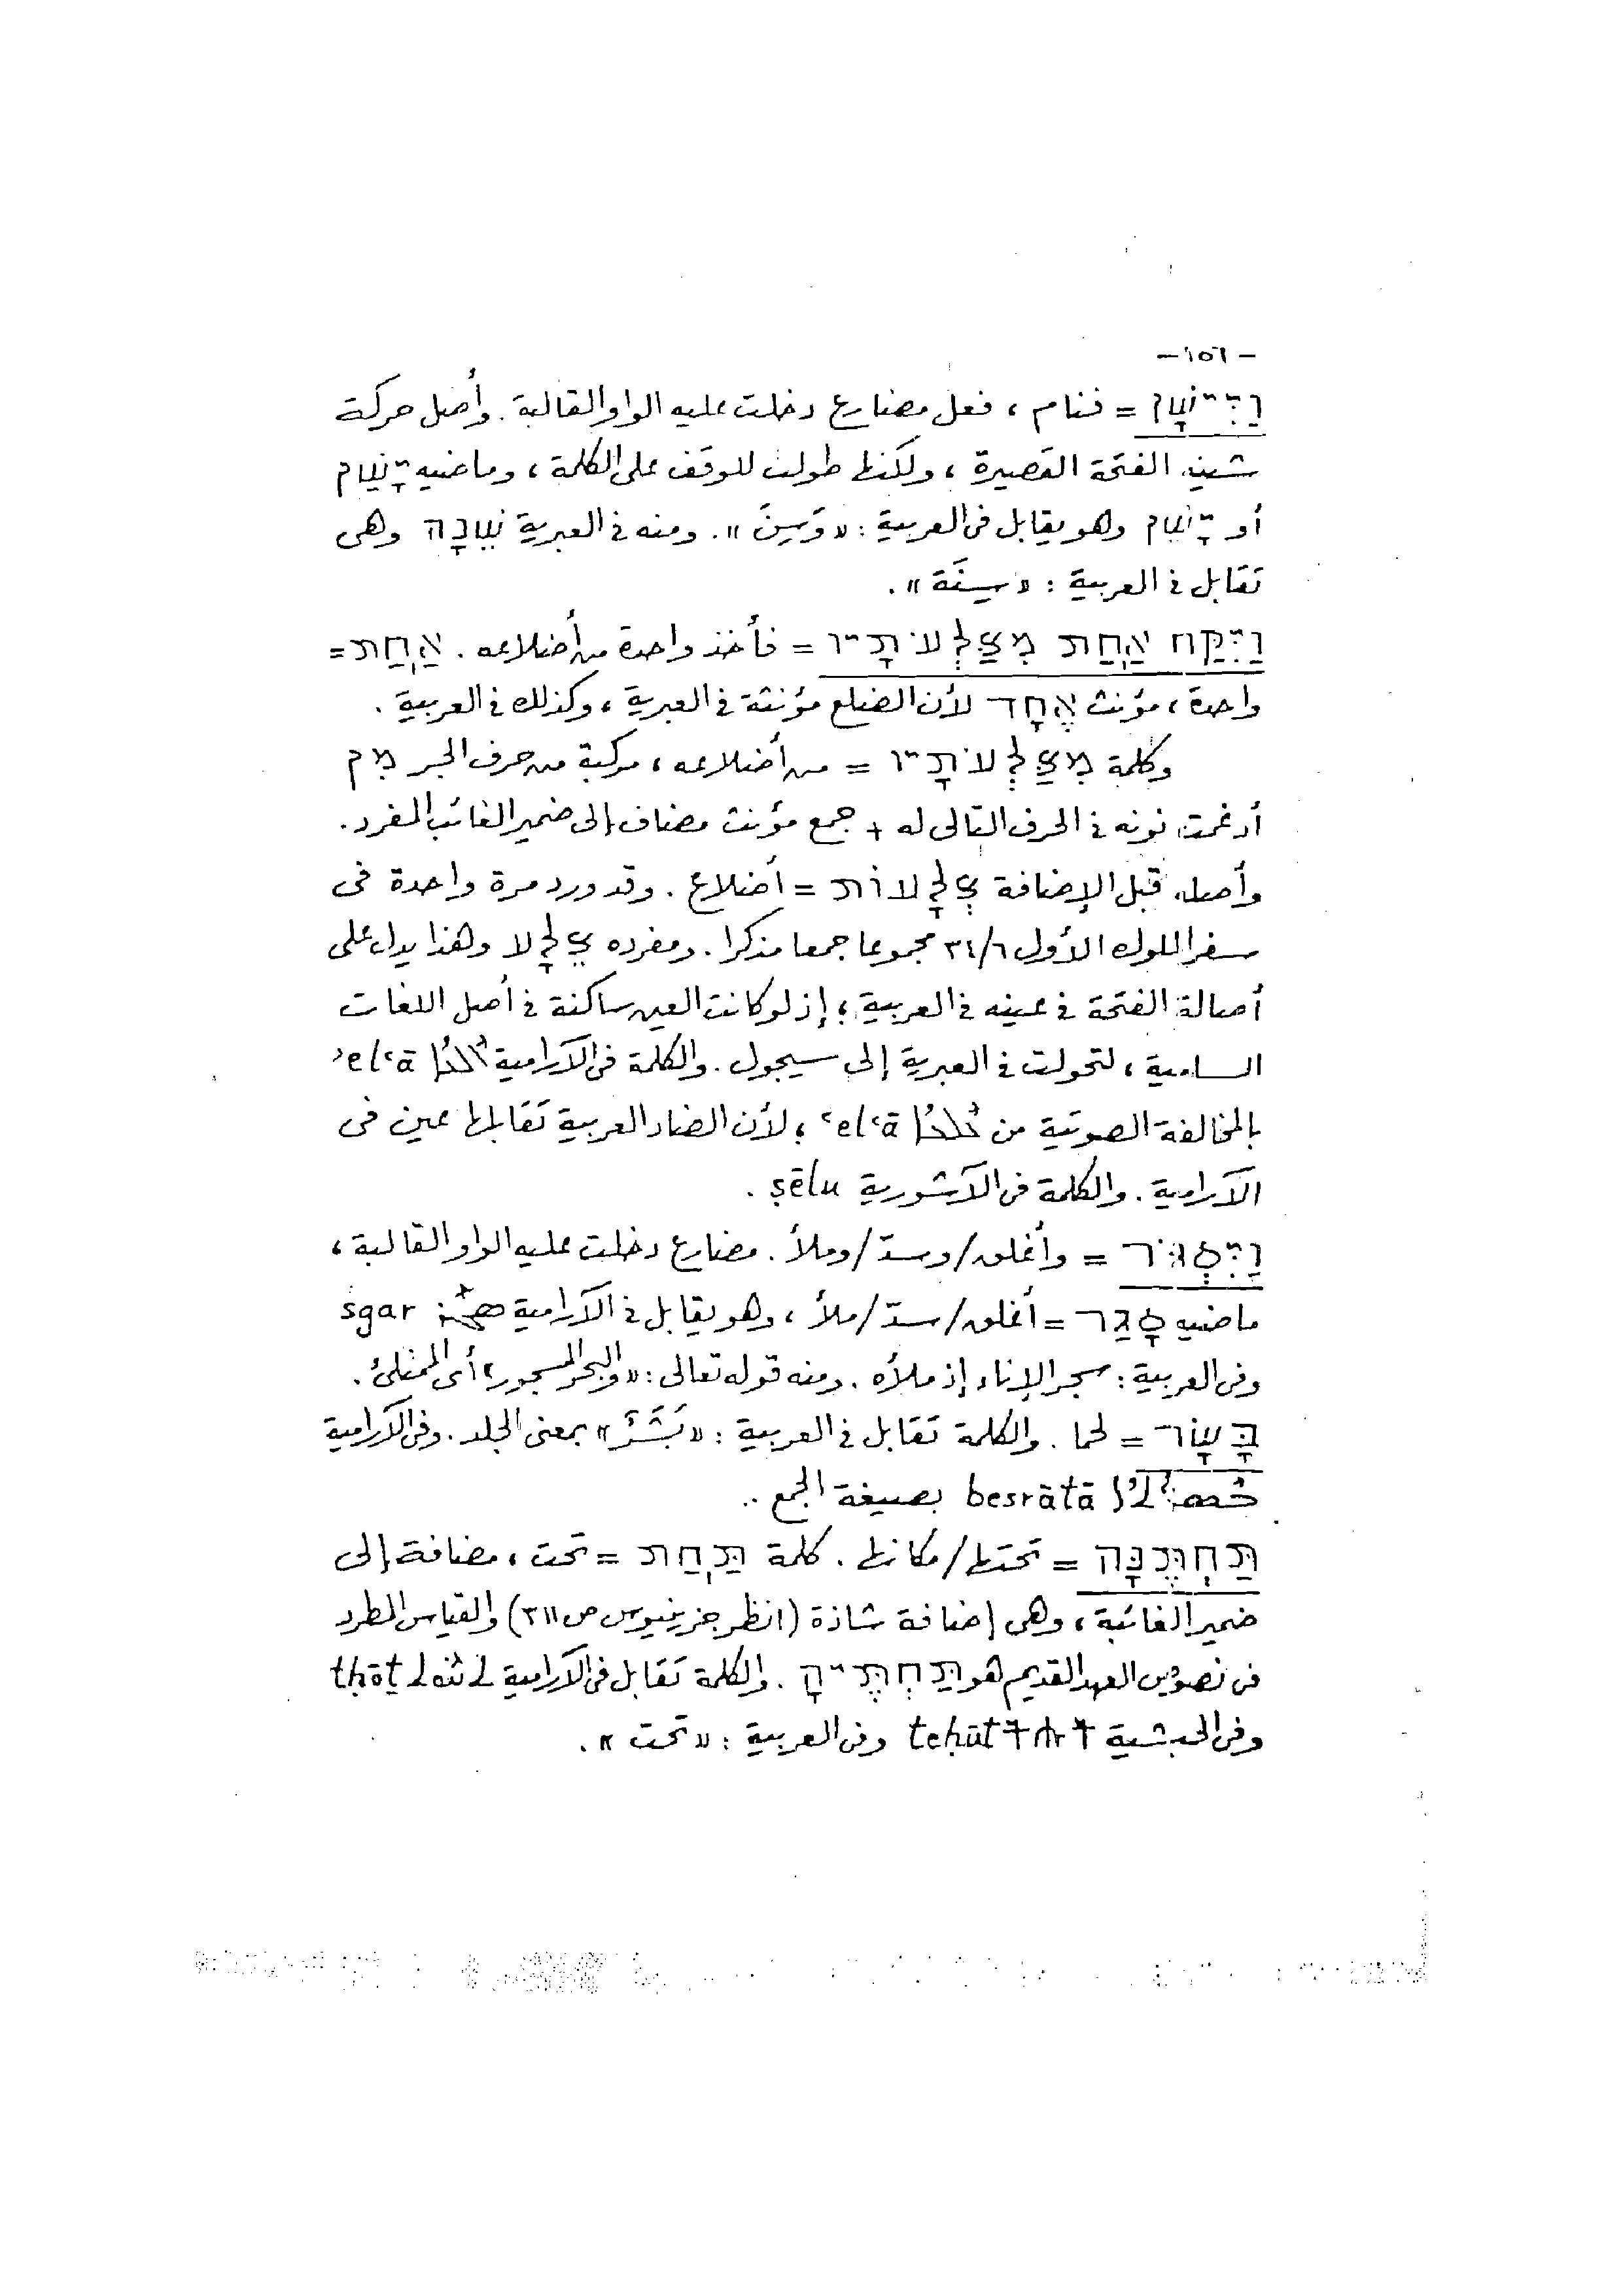 - ١٥٦ -
וַיִּישָׁן = فنام ، فعل مضارع دخلت عليه الواو القالبة . وأصل حركة
شينه الفتحة القصيرة ، ولكنها طولت للوقف على الكلمة ، وماضيه יָשֵׁן
أو יָשַׁן وهو يقابل فى العربية : « وَسِنَ » . ومنه فى العبرية שֵׁנָה وهى
تقابل فى العربية : « سِنَة » .
וַיִּקַּח אַחַת מִצַּלְעֹתָיו = فأخذ واحدة من أضلاعه . אַחַת =
واحدة ، مؤنث אֶחָד لأن الضلع مؤنثة فى العبرية ، وكذلك فى العربية .
وكلمة מִצַּלְעֹתָיו = من أضلاعه ، مركبة من حرف الجر מִן
أدغمت نونه فى الحرف التالى له + جمع مؤنث مضاف إلى ضمير الغائب المفرد .
وأصله قبل الإضافة צְלָעוֹת = أضلاع . وقد ورد مرة واحدة فى
سفر الملوك الأول ٣٤/٦ مجموعا جمعا مذكرا . ومفرده צֵלָע وهذا يدل على
أصالة الفتحة فى عينه فى العربية ؛ إذ لو كانت العين ساكنة فى أصل اللغات
السامية ، لتحولت فى العبرية إلى سيجول . والكلمة فى الآرامية ܐܠܥܐ ʾelʿā
بالمخالفة الصوتية من ܥܠܥܐ ʿelʿā ؛ لأن الضاد العربية تقابلها عين فى
الآرامية . والكلمة فى الآشورية ṣēlu .
וַיִּסְגֹּר = وأغلق/وسدّ/وملأ . مضارع دخلت عليه الواو القالبة ،
ماضيه סָגַר = أغلق/سدّ/ملأ ، وهو يقابل فى الآرامية ܣܓܪ sgar
وفى العربية : سجر الإناء إذ ملأه . ومنه قوله تعالى : « والبحر المسجور » أى الممتلئ .
בָּשָׂר = لحما . والكلمة تقابل فى العربية : « بَشَرٌ » بمعنى الجلد . وفى الآرامية
ܒܣܪܬܐ besrātā بصيغة الجمع ..
תַּחְתֶּנָּה = تحتها/مكانها . كلمة תַּחַת = تحت ، مضافة إلى
ضمير الغائبة ، وهى إضافة شاذة (انظر جزينيوس ص ٣١١) والقياس المطرد
فى نصوص العهد القديم هو תַּחְתֶּיהָ . والكلمة تقابل فى الآرامية ܬܚܘܬ tḥōt
وفى الحبشية ታሕት teḥūt وفى العربية : « تحت » .